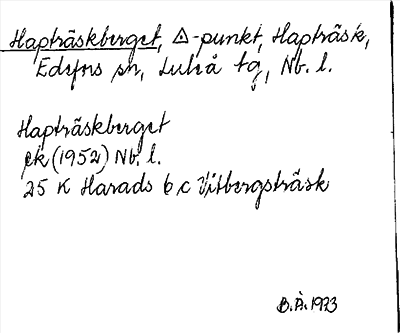 Hapträskberget, △-punkt, Hapträsk,
Edefors sn, Luleå tg, Nb. l.
Hapträskberget
ek (1952) Nb. l.
25 K Harads 6 c Vitbergsträsk
B.Å. 1973